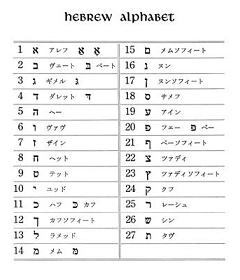 HEBREW ALPHABET
1 א アレフ א א
2 ב ヴェート בּ ベート
3 ג ギメル ג
4 ד ダレット ד
5 ה ヘー
6 ו ヴァヴ
7 ז ザイン
8 ח ヘット
9 ט テット
10 י ユッド
11 כ ハフ כ カフ
12 ך カフソフィート
13 ל ラメッド
14 מ メム מ
15 ם メムソフィート
16 נ ヌン
17 ן ヌンソフィート
18 ס サメフ
19 ע アイン
20 פ フェー פ ペー
21 ף ペーソフィート
22 צ ツァディ
23 ץ ツァディソフィート
24 ק クフ
25 ר レーシュ
26 ש シン
27 ת タヴ